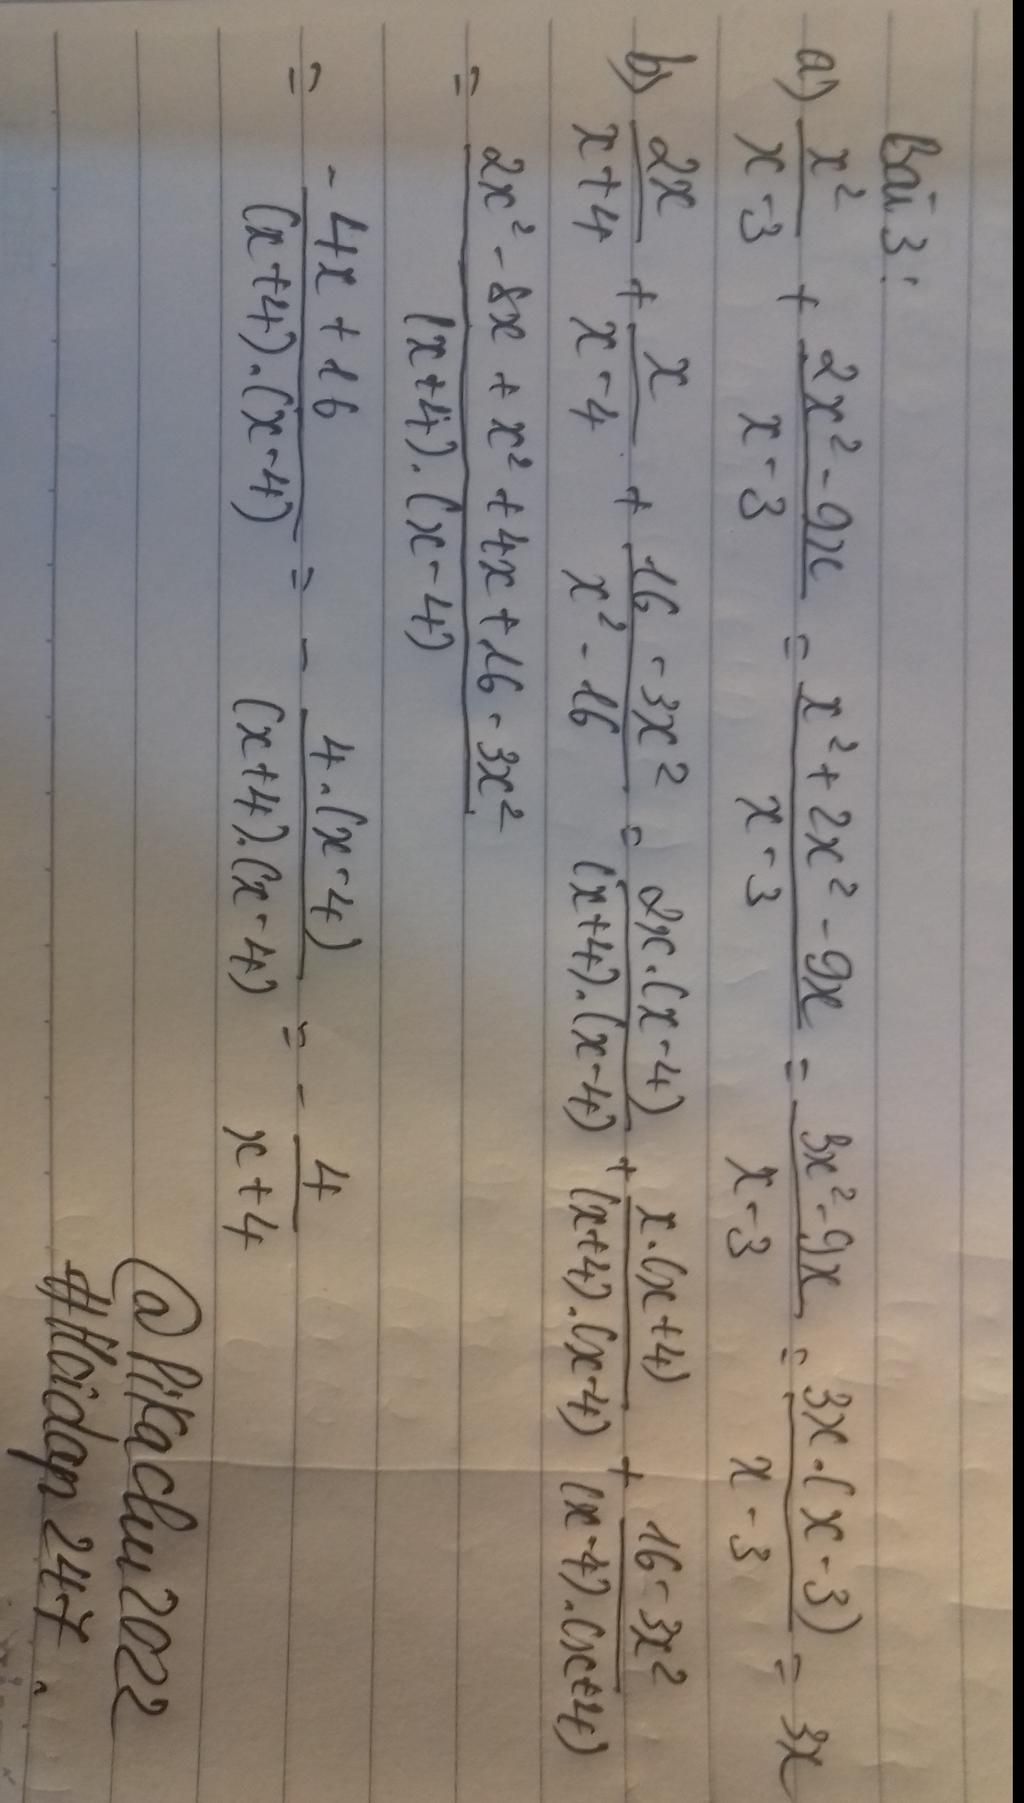 Bài 3:
a) x²/(x-3) + (2x²-9x)/(x-3) = (x²+2x²-9x)/(x-3) = (3x²-9x)/(x-3) = 3x.(x-3)/(x-3) = 3x
b) 2x/(x+4) + x/(x-4) + (16-3x²)/(x²-16) = 2x.(x-4)/(x+4).(x-4) + x.(x+4)/(x+4).(x-4) + (16-3x²)/(x-4).(x+4)
= (2x²-8x+x²+4x+16-3x²)/(x+4).(x-4)
= (-4x+16)/(x+4).(x-4) = - 4.(x-4)/(x+4).(x-4) = - 4/(x+4)
@Pikachu2022
#Hoidap247.